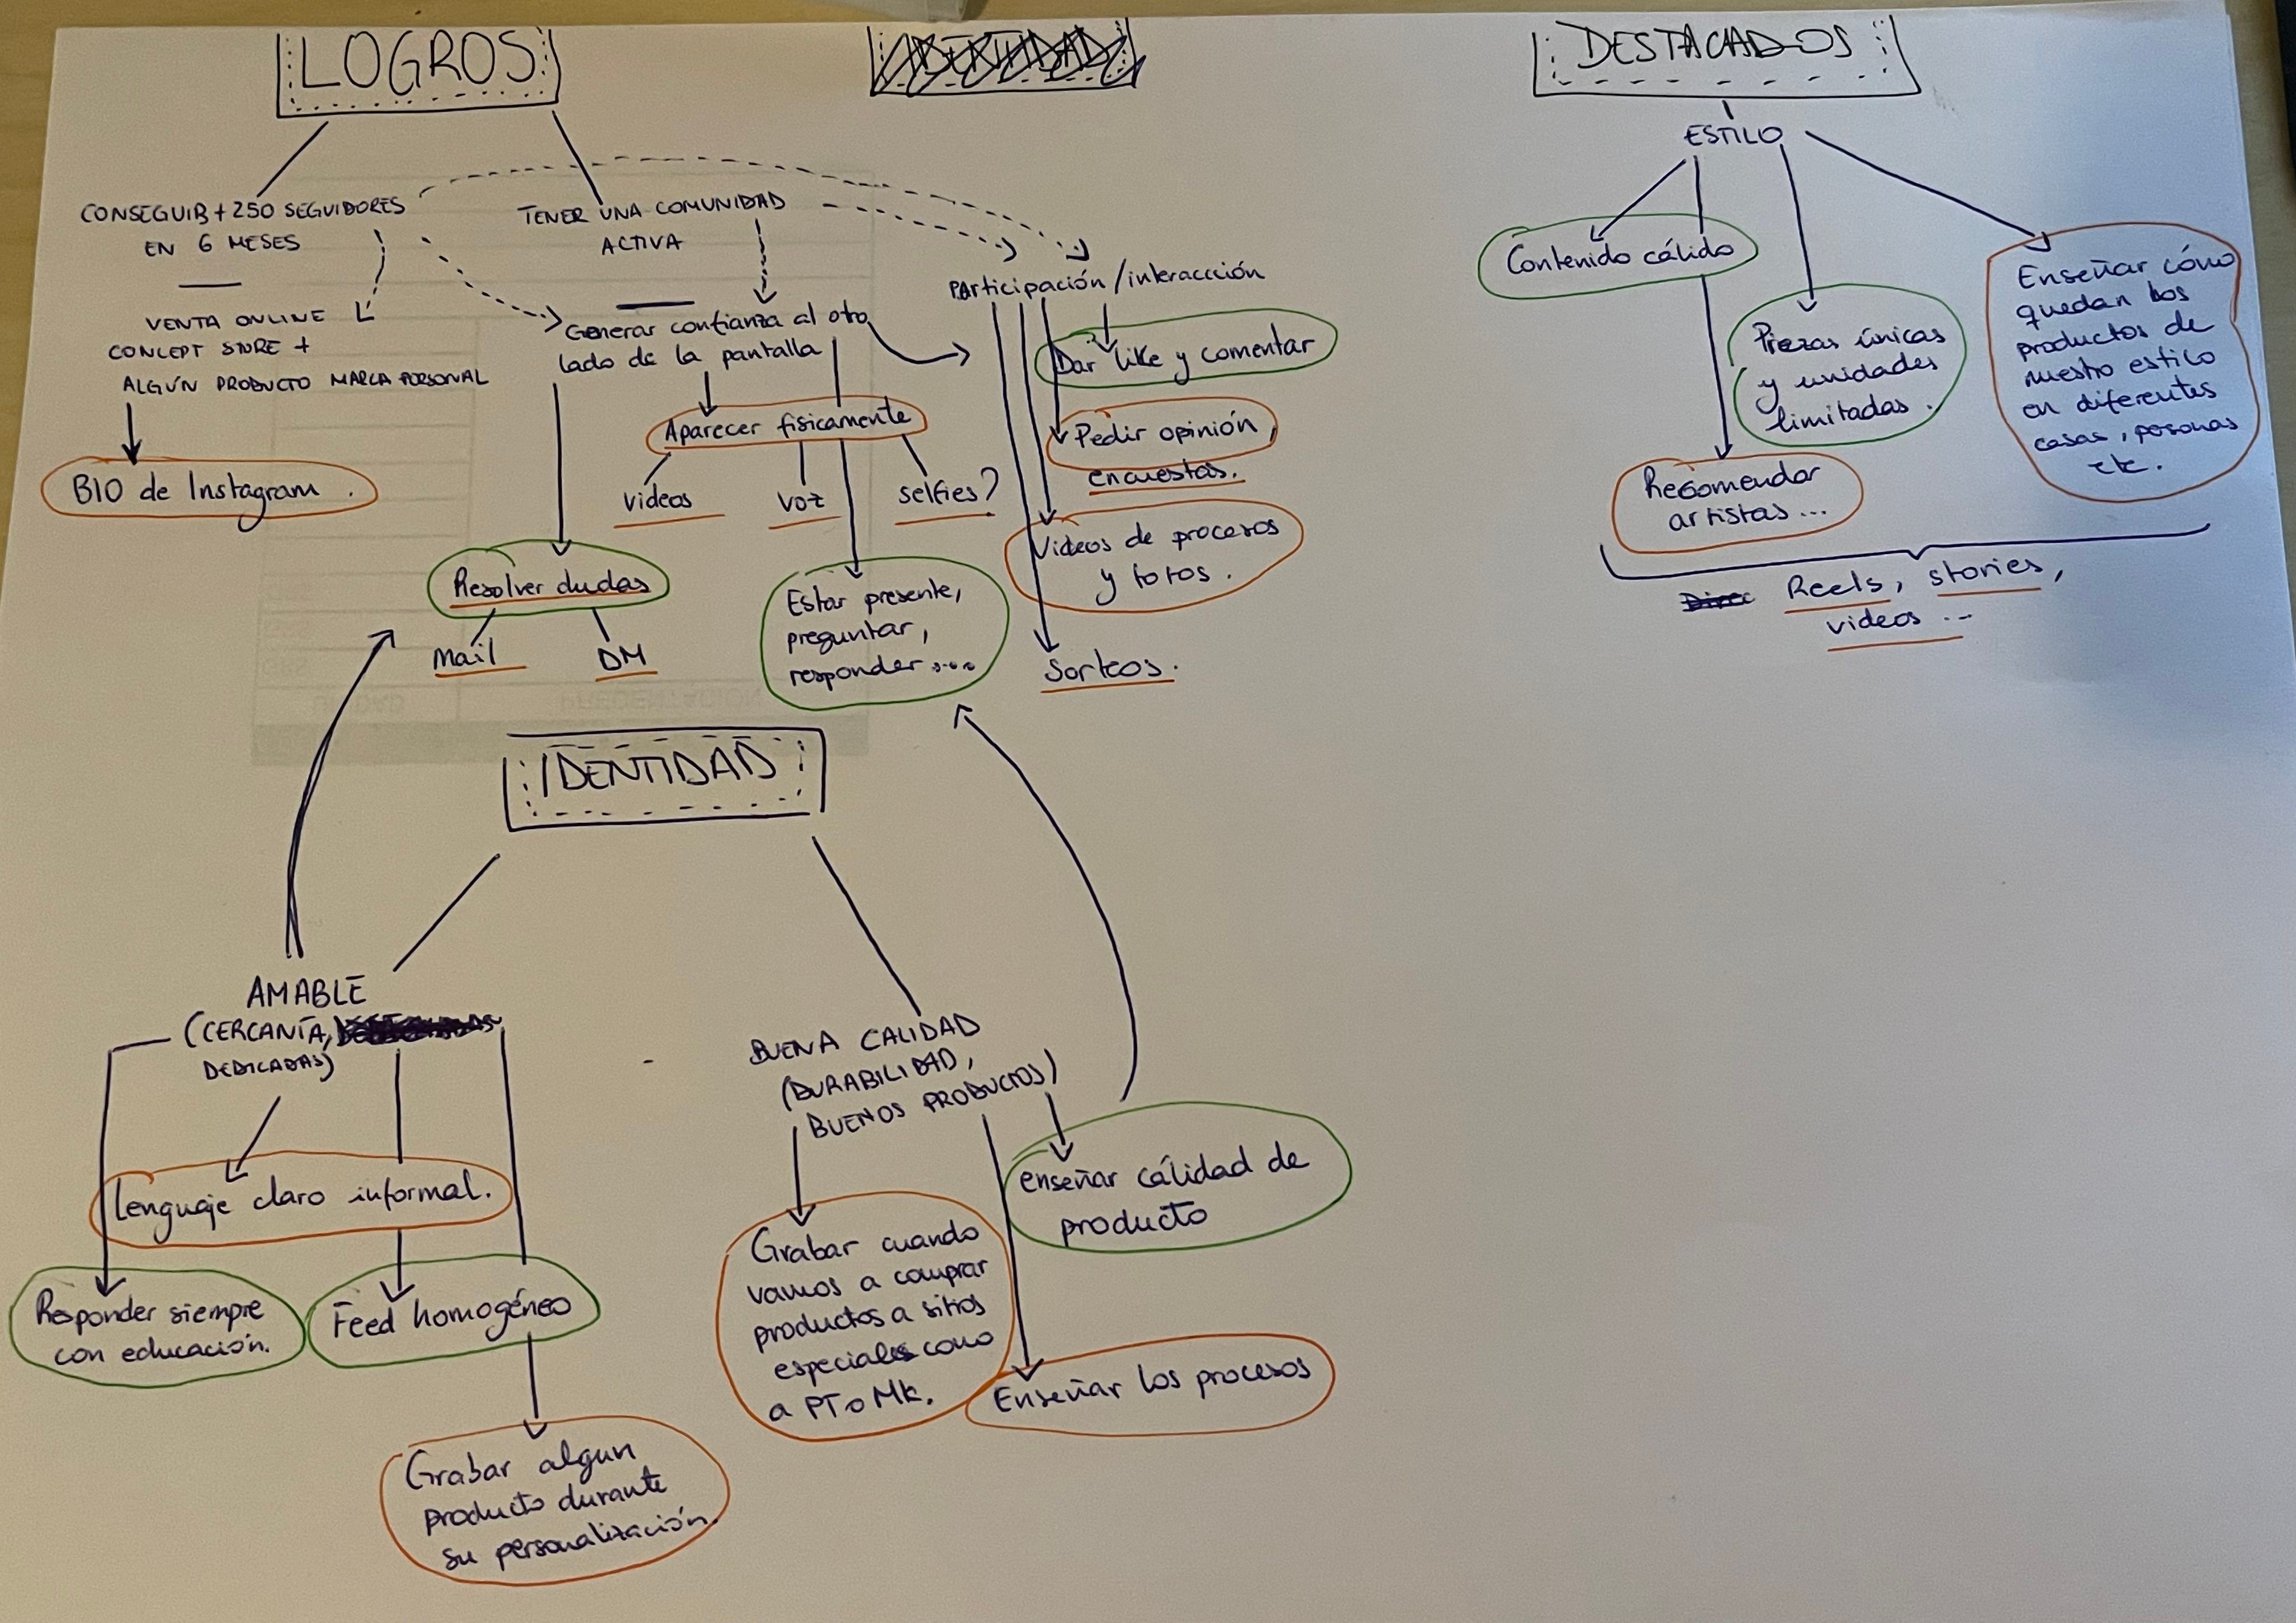 LOGROS
CONSEGUIR +250 SEGUIDORES
EN 6 MESES
VENTA ONLINE
CONCEPT STORE +
ALGÚN PRODUCTO MARCA PERSONAL
BIO de Instagram.
TENER UNA COMUNIDAD
ACTIVA
Generar confianza al otro
lado de la pantalla
Aparecer fisicamente
videos
voz
selfies?
Resolver dudas
Mail
DM
Estar presente,
preguntar,
responder....
Participación/interaccción
Dar like y comentar
Pedir opinión,
encuestas.
Videos de procesos
y fotos.
Sorteos.
DESTACADOS
ESTILO
Contenido cálido
Recomendar
artistas...
Piezas únicas
y unidades
limitadas.
Enseñar cómo
quedan los
productos de
nuestro estilo
en diferentes
casas, personas
etc.
Reels, stories,
videos ...
IDENTIDAD
AMABLE
(CERCANÍA,
DEDICADAS)
Lenguaje claro informal.
Responder siempre
con educación.
Feed homogéneo
Grabar algun
producto durante
su personalización.
BUENA CALIDAD
(DURABILIDAD,
BUENOS PRODUCTOS)
Grabar cuando
vamos a comprar
productos a sitios
especiales como
a PT o Mk.
enseñar cálidad de
producto
Enseñar los procesos
PRESENTACIÓN
UNIDAD